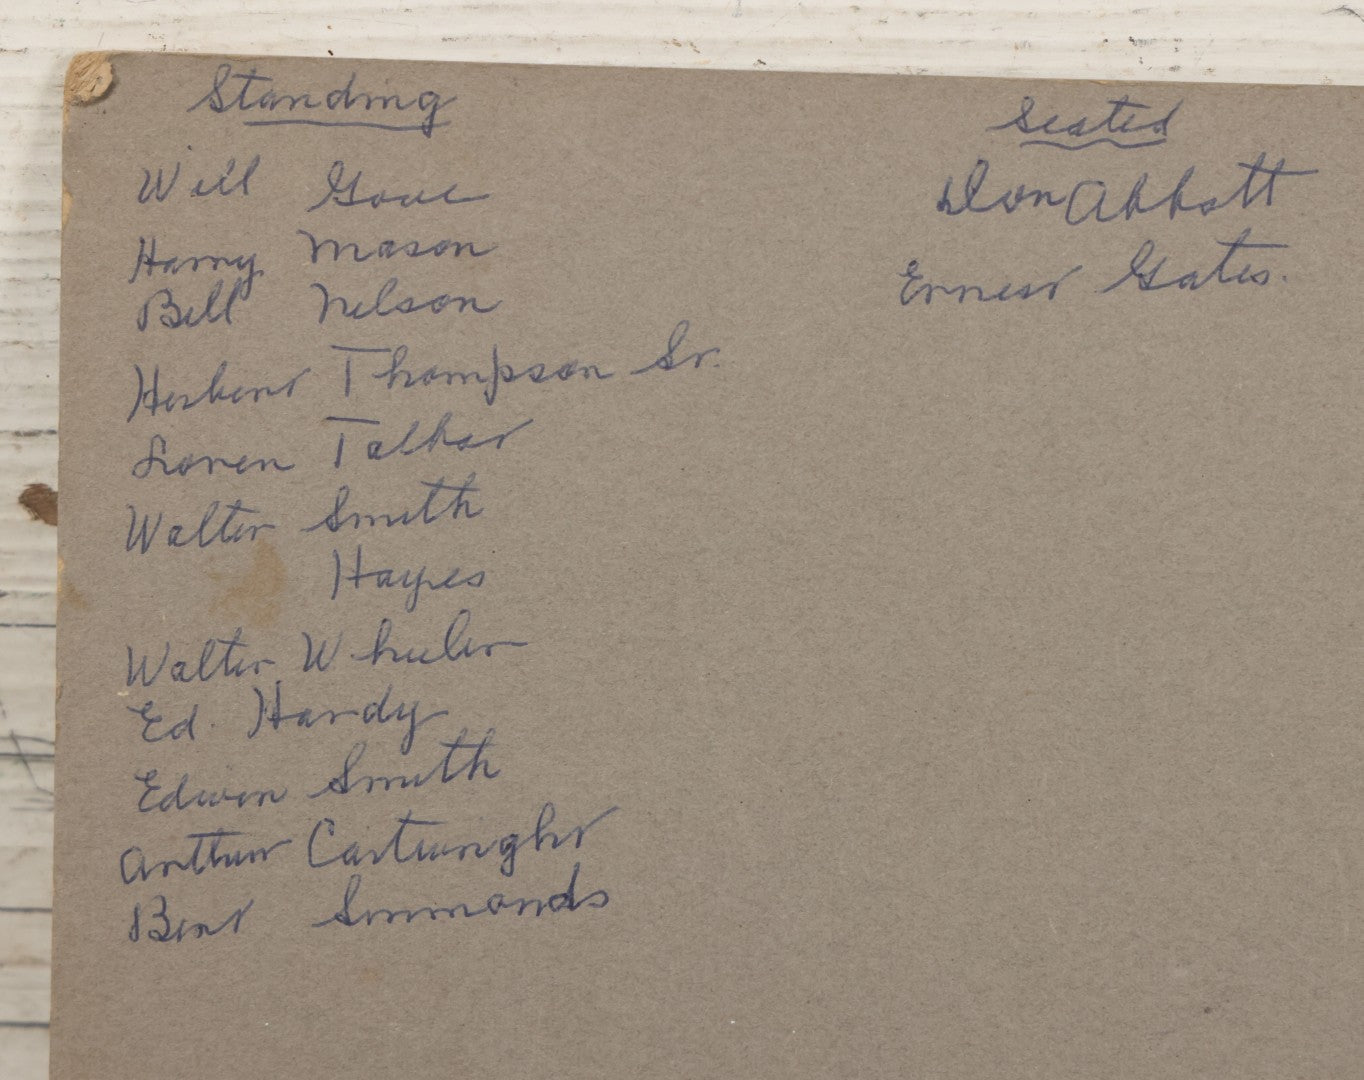 Standing
Will Gove
Harry Mason
Bill Nelson
Herbert Thompson Sr.
Loren Talbot
Walter Smith
Hayes
Walter Wheeler
Ed. Hardy
Edwin Smith
Arthur Cartwright
Bert Simmonds
Seated
Don Abbott
Ernest Gates.